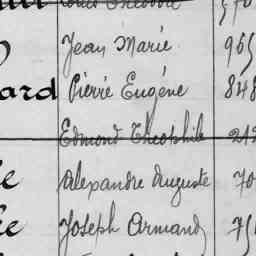 Louis Théodore
Jean Marie 965
ard Pierre Eugéne 848
Edmond Théophile 212
Alexandre Auguste 70
Joseph Armand 75